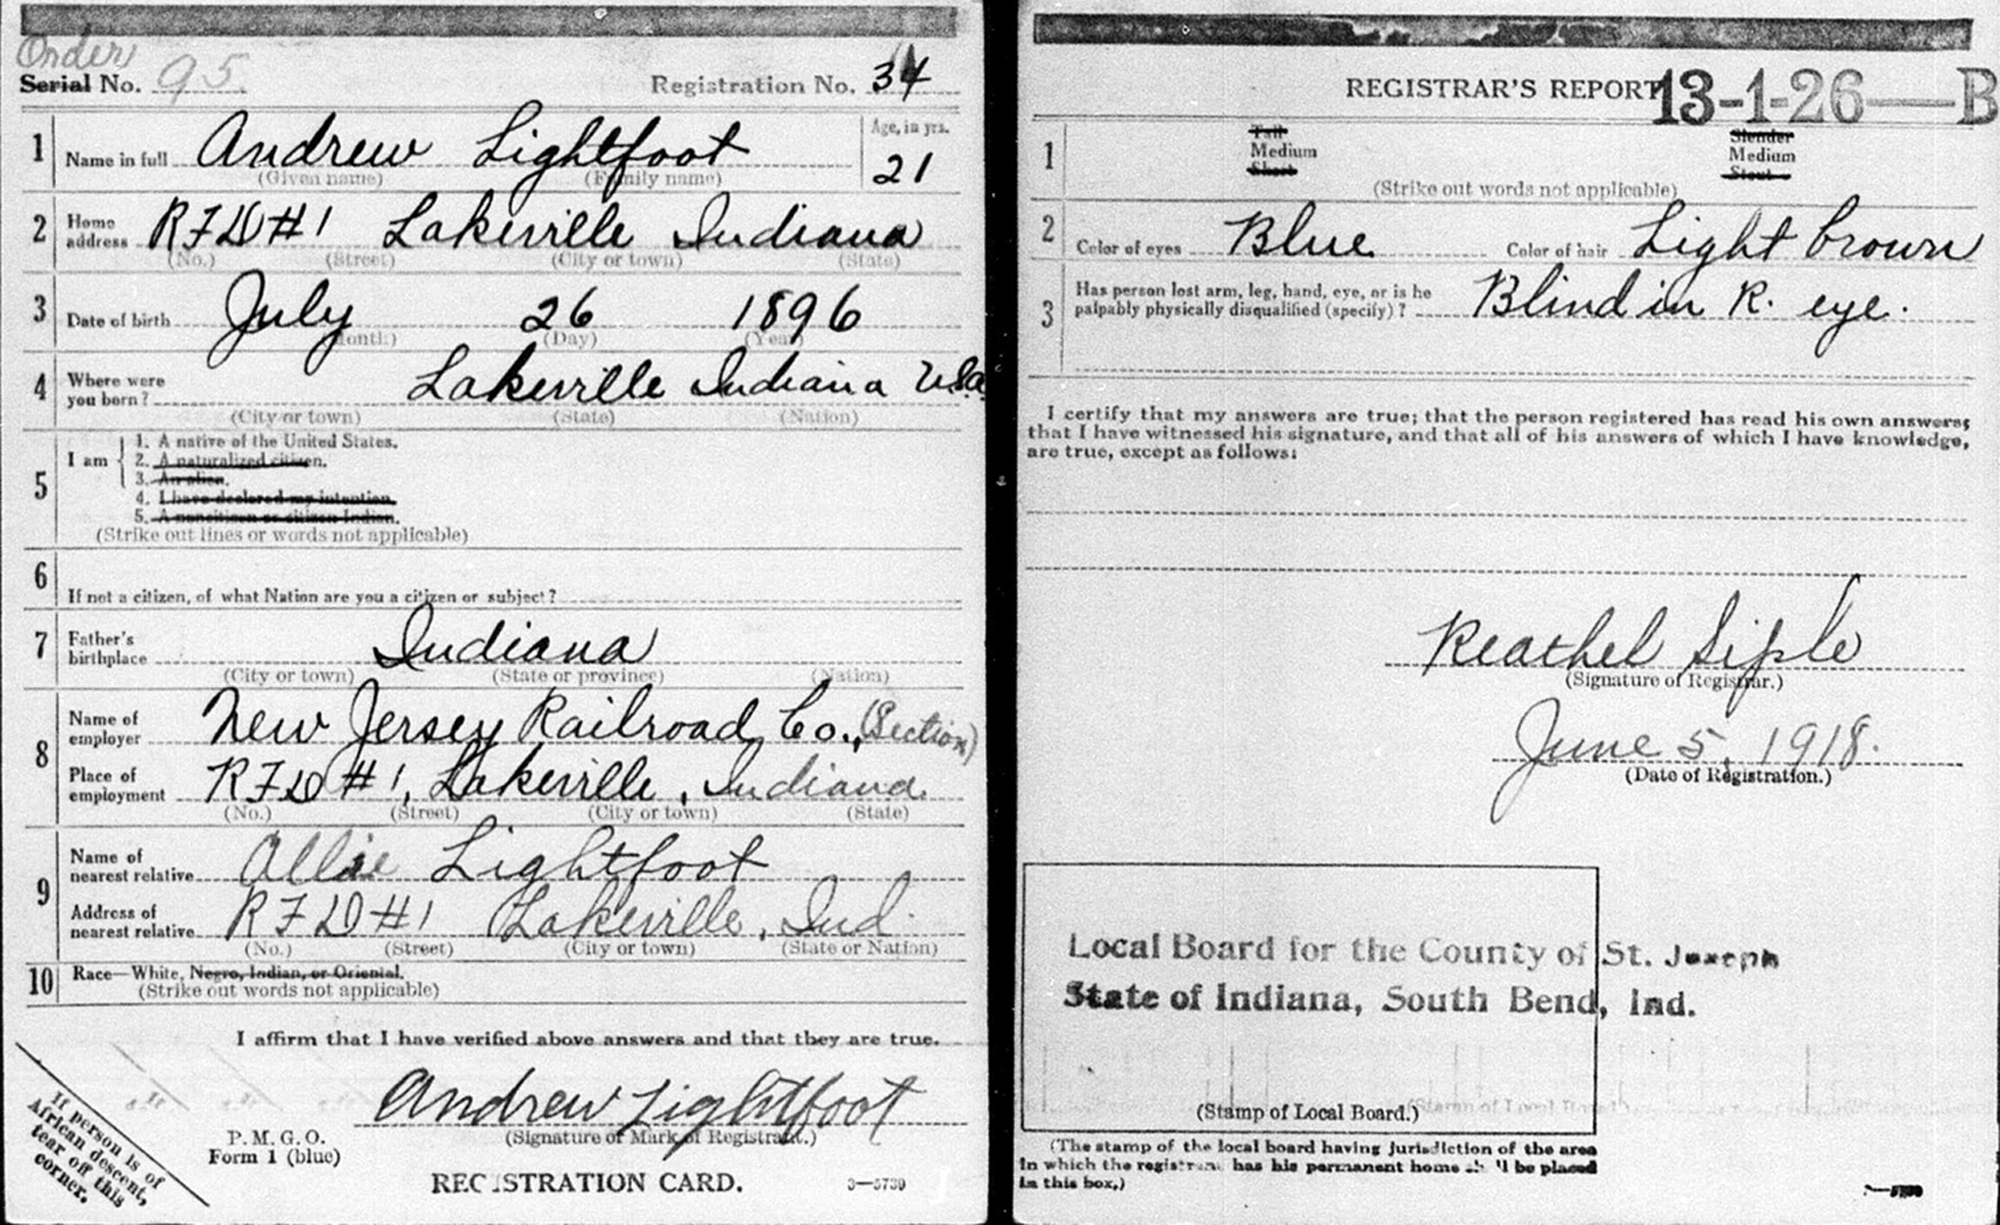 Order
Serial No. 95.
Registration No. 34
1 Name in full Andrew Lightfoot
(Given name) (Family name)
Age, in yrs.
21
2 Home address RFD#1 Lakeville Indiana
(No.) (Street) (City or town) (State)
3 Date of birth July 26 1896
(Month) (Day) (Year)
4 Where were you born? Lakeville Indiana USA
(City or town) (State) (Nation)
5 I am
1. A native of the United States.
2. A naturalized citizen.
3. An alien.
4. I have declared my intention.
5. A noncitizen or citizen Indian.
(Strike out lines or words not applicable)
6 If not a citizen, of what Nation are you a citizen or subject?
7 Father's birthplace Indiana
(City or town) (State or province) (Nation)
8 Name of employer New Jersey Railroad Co., (Section)
Place of employment RFD #1, Lakeville, Indiana.
(No.) (Street) (City or town) (State)
9 Name of nearest relative Allie Lightfoot
Address of nearest relative RFD#1 Lakeville, Ind.
(No.) (Street) (City or town) (State or Nation)
10 Race—White, Negro, Indian, or Oriental.
(Strike out words not applicable)
I affirm that I have verified above answers and that they are true.
Andrew Lightfoot
(Signature or Mark of Registrant.)
P. M. G. O.
Form 1 (blue)
REGISTRATION CARD. 3—5739
If person is of
African descent,
tear off this
corner.
REGISTRAR'S REPORT 13-1-26—B
1 Tall Slender
Medium Medium
Short Stout
(Strike out words not applicable)
2 Color of eyes Blue Color of hair Light brown
3 Has person lost arm, leg, hand, eye, or is he
palpably physically disqualified (specify)? Blind in R. eye.
I certify that my answers are true; that the person registered has read his own answers;
that I have witnessed his signature, and that all of his answers of which I have knowledge,
are true, except as follows:
Reathel Siple
(Signature of Registrar.)
June 5, 1918.
(Date of Registration.)
Local Board for the County of St. Joseph
State of Indiana, South Bend, Ind.
(Stamp of Local Board.)
(The stamp of the local board having jurisdiction of the area
in which the registrant has his permanent home shall be placed
in this box.)